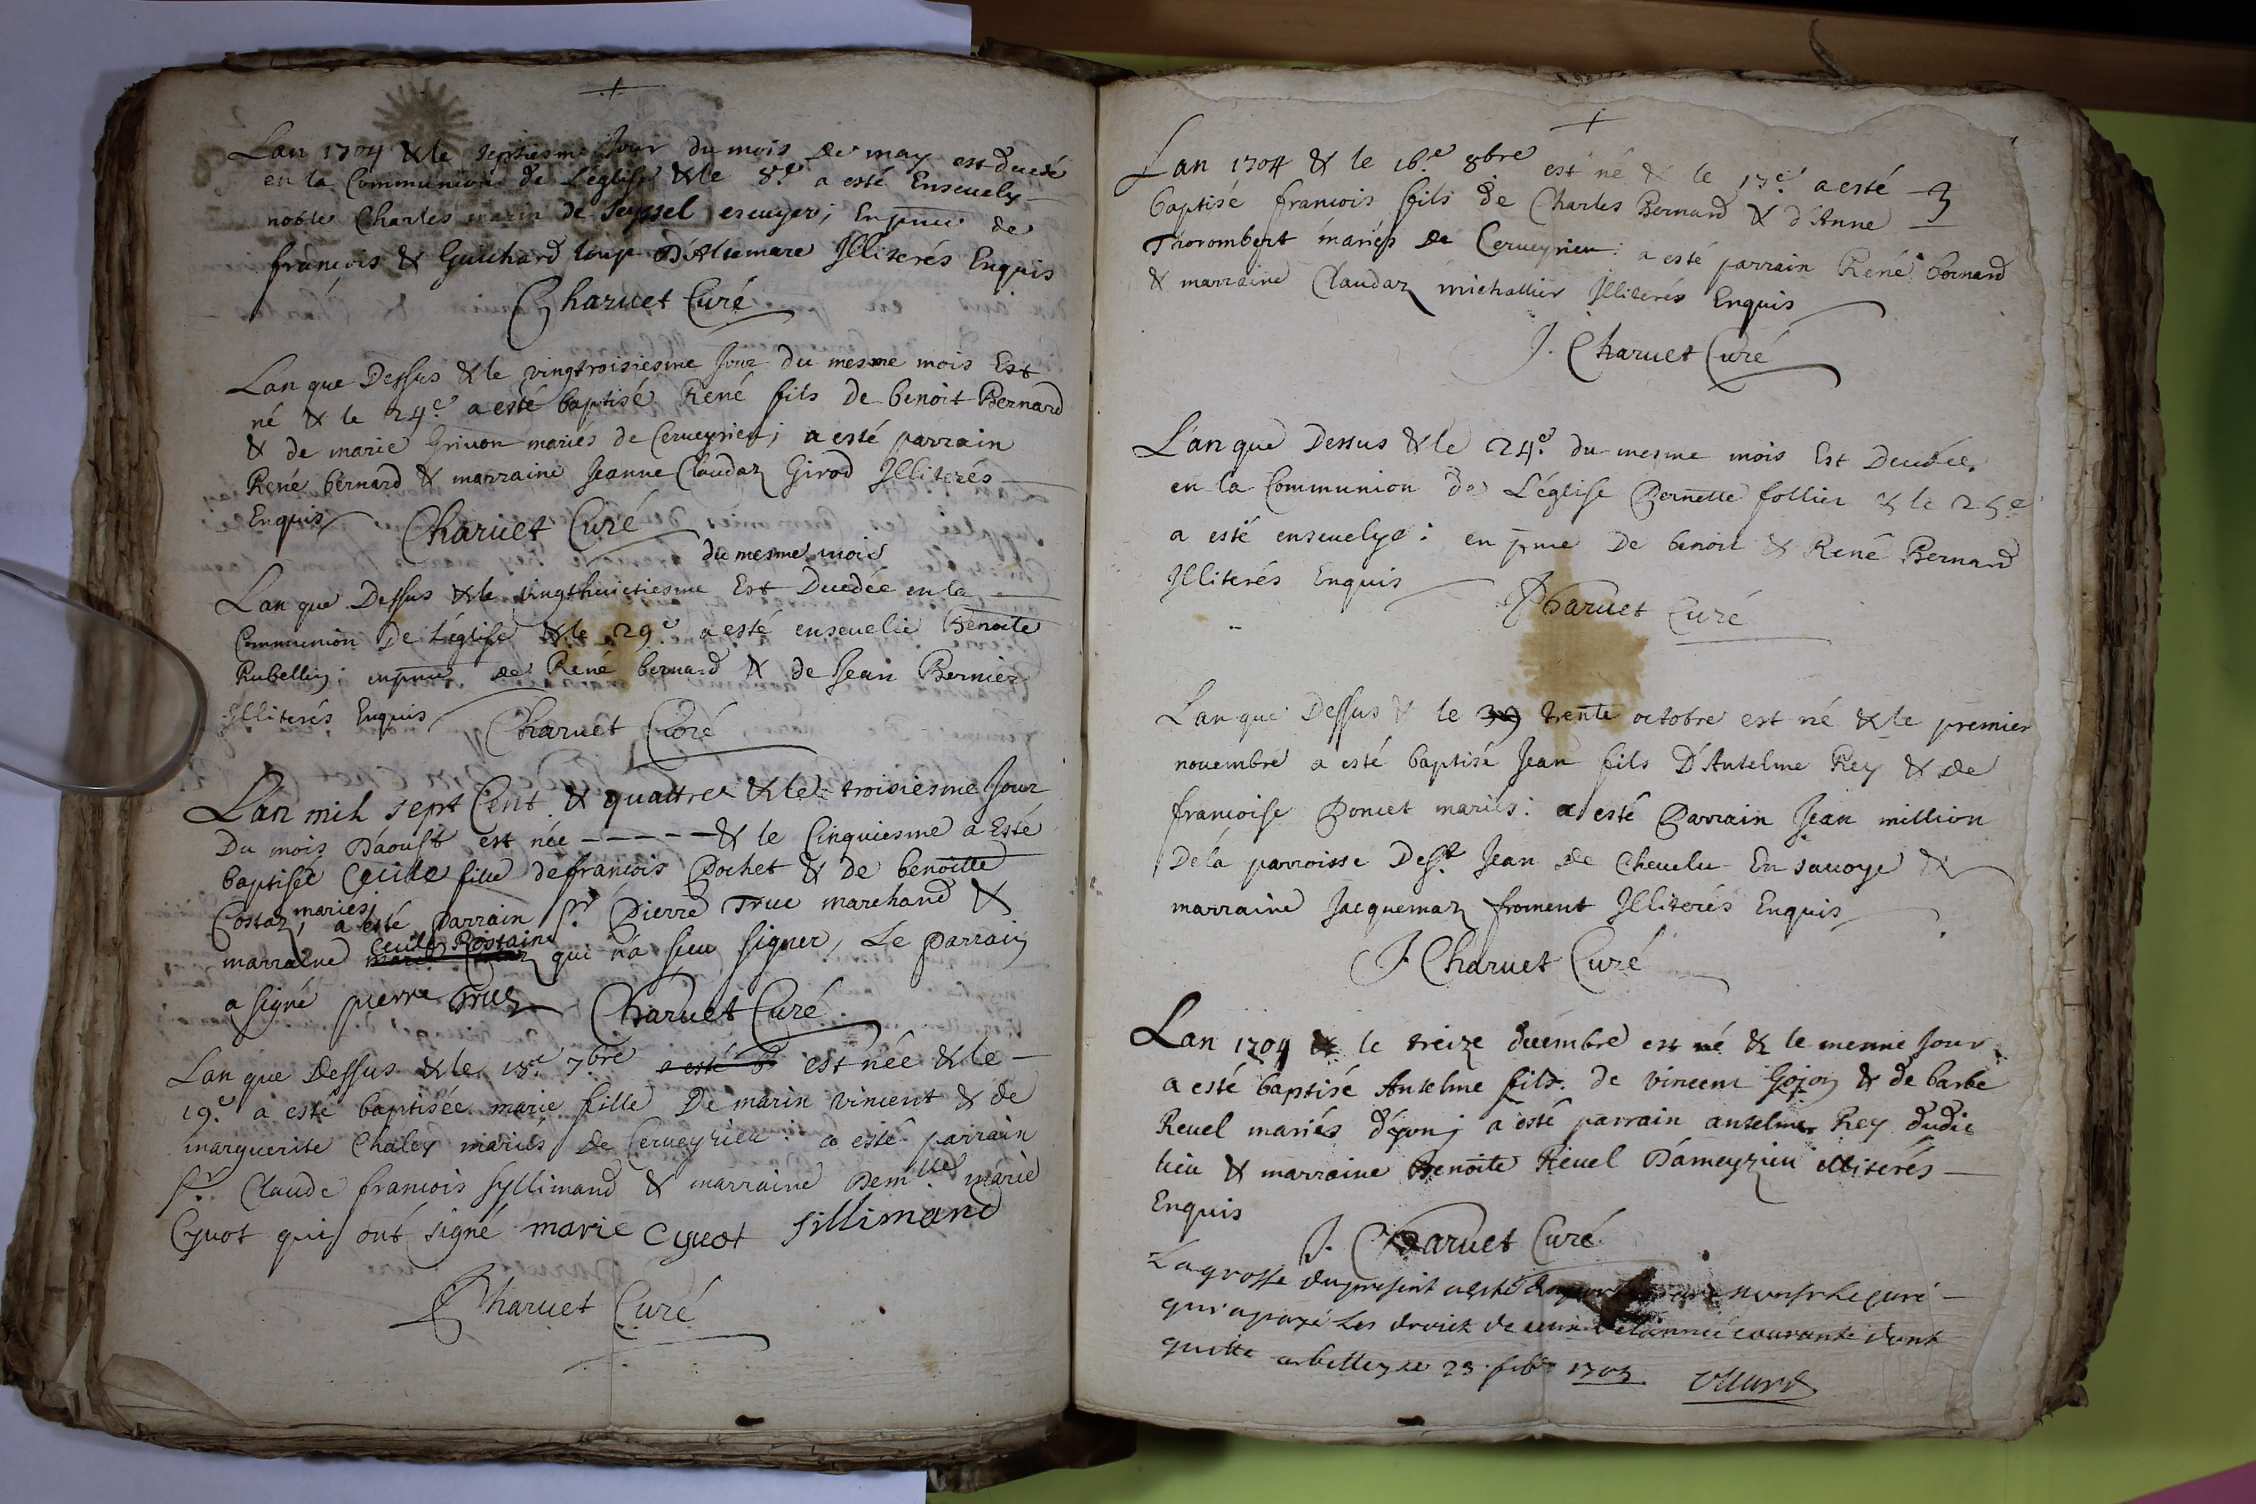 Lan 1704 & le septiesme Jour du mois de may est decedé
en la Communion de Leglise & le 8e a esté Enseuely
noble Charles marin de seyssel escuyer; En pnce de
françois & Guichard loup D'Altemare Jlliterés Enquis
Charuet Curé
Lan que Dessus & le vingtroisiesme Jour du mesme mois Est
né & le 24e a esté baptisé René fils de benoit Bernard
& de marie Griuon mariés de Cerueyrieu; a esté parrain
René bernard & marraine Jeanne Claudaz Girod Jlliterés
Enquis Charuet Curé
du mesme mois
Lan que Dessus & le vingthuictiesme Est Decedée en la
Communion De Léglise & le 29e a esté enseuelie Benoite
Rubellin; en pnce de René bernard & de Jean Bernier
Jlliterés Enquis Charuet Curé
L'an mil sept Cent & quattre & le troisiesme Jour
Du mois D'aoust est née & le Cinquiesme a Esté
baptisée Cecile fille de francois Pochet & de benoitte
Costaz, mariés, a esté parrain Sr Pierre Truc marchand &
marraine Cecile Rostaine qui n'a sceu signer, Le parrain
a signé pierre Truc Charuet Curé
Lan que Dessus & le 18e 7bre a esté b est née & le
19e a esté baptisée marie fille De marin vincent & de
marguerite Chaley mariés de Cerueyrieu: a esté parrain
Sr Claude francois syllimand & marraine Demlle marie
Cyuot qui ont signé marie Cyuot sillimand
J Charuet Curé
Lan 1704 & le 16e 8bre est né & le 17e a esté
baptisé francois fils de Charles Bernard & d'Anne
Trorombert mariés de Cerueyrieu: a esté parrain René bernard
& marraine Claudaz michallier Jlliterés Enquis
J. Charuet Curé
L'an que Dessus & le 24e du mesme mois Est Decedée
en la Communion de L'église Pernette follier & le 25e
a esté enseuelye: en pnce De benoit & René Bernard
Jlliterés Enquis J Charuet Curé
Lan que Dessus & le trente octobre est né & le premier
nouembre a esté baptisé Jean fils D'Antelme Rey & de
francoise Poncet mariés: a esté Parrain Jean million
De la parroisse De St Jean de Cheuelu En sauoye &
marraine Jacquemaz froment Jlliterés Enquis
J Charuet Curé
Lan 1704 & le treize decembre est né & le mesme Jour
a esté baptisé Antelme fils de vincent Gojon & de barbe
Reuel mariés d'éyon; a esté parrain antelme Rey dudit
lieu & marraine Benoite Reuel D'ameyzieu illiterés
Enquis
J. Charuet Curé
La grosse du present a esté monsr Le curé
qui a payé Les droict de L'année courante dont
quitte a belley ce 23 feb 1705